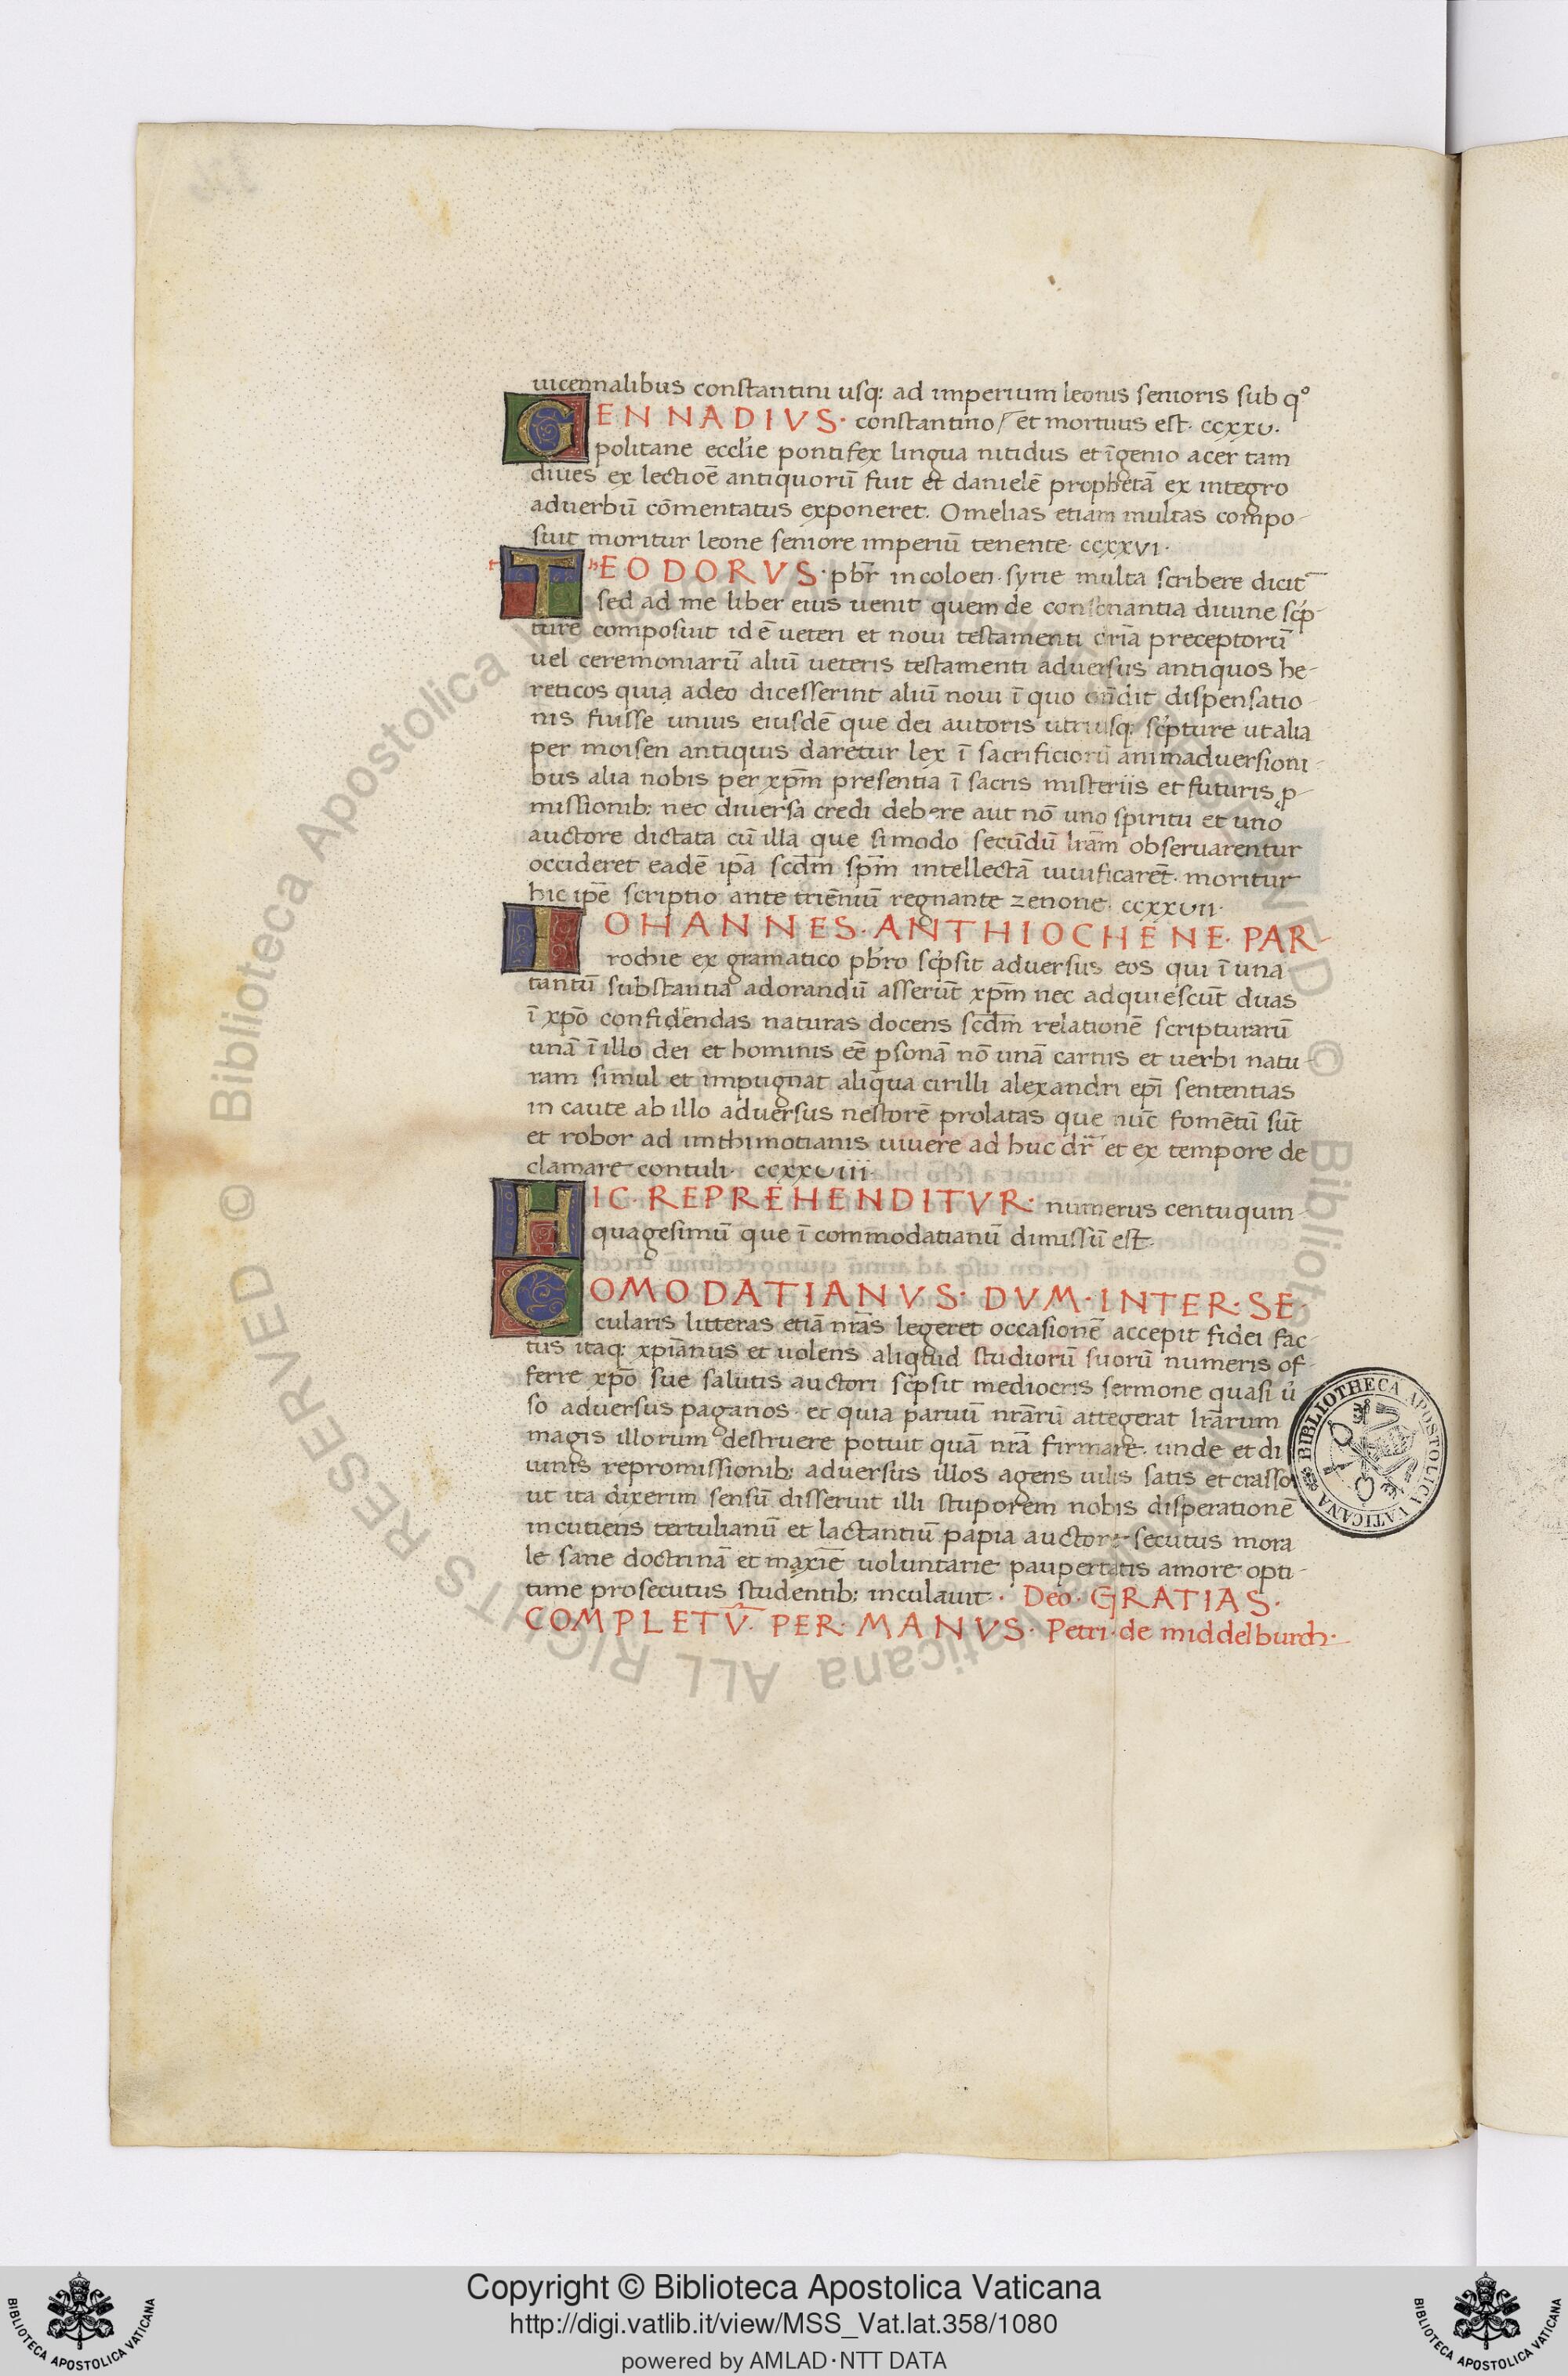 uicennalibus constantini usq: ad imperium leonis senioris sub q°
GENNADIVS· constantino/ et mortuus est· ccxxv·
politane ecclie pontifex lingua nitidus et īgenio acer tam
diues ex lectioē antiquorū fuit et danielē prophetā ex integro
aduerbū cōmentatus exponeret. Omelias etiam multas compo-
suit moritur leone seniore imperiū tenente· ccxxvi·
THEODORVS· pbr̄ incoloen· syrie multa scribere dicit̄
sed ad me liber eius uenit quem de consonantia diuine scp̄-
ture composuit id ē ueteri et noui testamenti dr̄ia preceptorū
uel ceremoniarū aliū ueteris testamenti aduersus antiquos he-
reticos quia adeo dicesserint aliū noui ī quo on̄dit dispensatio
nis fuisse unius eiusdē que dei autoris utriusq: scp̄ture ut alia
per moisen antiquis daretur lex ī sacrificiorū animaduersioni-
bus alia nobis per xp̄m presentia ī sacris misteriis et futuris p-
missionib: nec diuersa credi debere aut nō uno spiritu et uno
auctore dictata cū illa que si modo secūdū lr̄am obseruarentur
occideret eadē ip̄a scd̄m sp̄m intellectā uiuificaret̄· moritur
hic ip̄e scriptio ante triēniū regnante zenone· ccxxvii·
IOHANNES· ANTHIOCHENE· PAR-
rochie ex gramatico pbr̄o scp̄sit aduersus eos qui ī una
tantū substantia adorandū asserūt xp̄m nec adquiescūt duas
ī xp̄o confidendas naturas docens scd̄m relationē scripturarū
unā ī illo dei et hominis eē psonā nō unā carnis et uerbi natu-
ram simul et impugnat aliqua cirilli alexandri ep̄i sententias
in caute ab illo aduersus nestorē prolatas que nūc fomētū sūt
et robor ad imthimotianis uiuere ad huc dr̄ et ex tempore de
clamare contuli· ccxxviii·
HIC· REPREHENDITVR· numerus centuquin-
quagesimū que ī commodatianū dimissū est·
COMODATIANVS· DVM· INTER· SE·
cularis litteras etiā nr̄as legeret occasionē accepit fidei fac-
tus itaq: xpiānus et uolens aliquid studiorū suorū numeris of-
ferre xp̄o sue salutis auctori scp̄sit mediocris sermone quasi ū
so aduersus paganos· et quia paruū nr̄arū attegerat lr̄arum
magis illorum destruere potuit quā nr̄a firmare· unde et di
uinis repromissionib: aduersus illos agens uilis satis et crasso
ut ita dixerim sensū disseruit illi stuporem nobis disperationē
incutiens tertulianū et lactantiū papia auctore secutus mora
le sane doctrinā et maxīe uoluntarie paupertatis amore opti-
time prosecutus studentib: inculauit·· Deo· GRATIAS·
COMPLETV̄· PER· MANVS· Petri· de middelburch·
BIBLIOTHECA APOSTOLICA VATICANA
© Biblioteca Apostolica Vaticana ALL RIGHTS RESERVED
Copyright © Biblioteca Apostolica Vaticana
http://digi.vatlib.it/view/MSS_Vat.lat.358/1080
powered by AMLAD·NTT DATA
BIBLIOTECA APOSTOLICA VATICANA
BIBLIOTECA APOSTOLICA VATICANA